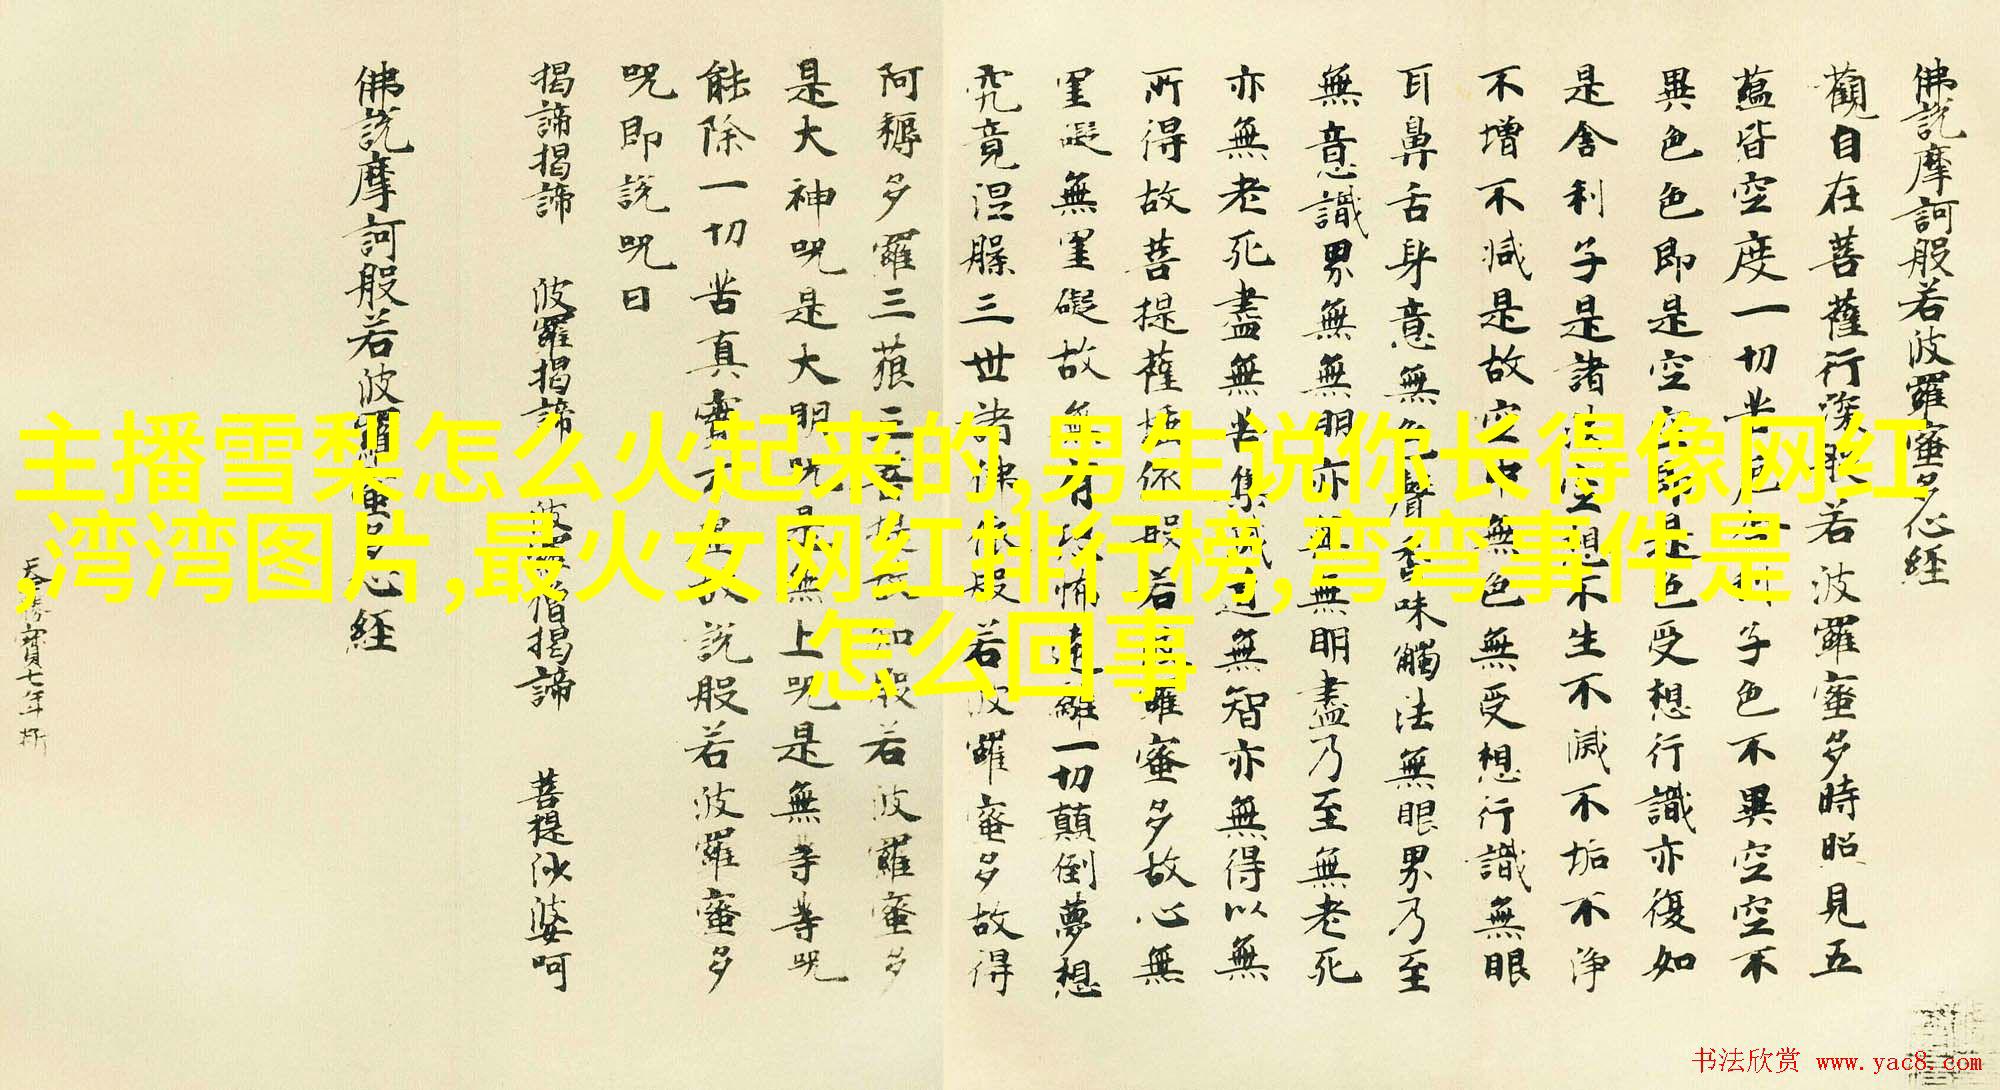 佛說摩訶般若波羅蜜多心経
觀自在菩薩行深般若波羅蜜多時照見五
蘊皆空度一切苦厄子色不異空空不
異色色即是空空即是色受想行識亦復如
是舎利子是諸法空相不生不滅不垢不浄
不增不減是故空中無色無受想行識無眼
耳鼻舌身意無色聲香味觸法無眼界乃至
無意識界無無明亦無無明盡乃至無老死
亦無老死盡無苦集滅道無智亦無得以無
所得故菩提薩埵依般若波羅蜜多故心無
罣礙無罣礙故無有恐怖遠離一切顛倒夢想
究竟涅槃三世諸佛依般若波羅蜜多故得
阿耨多羅三藐三菩提故知般若波羅蜜多
是大神呪是大明呪是無上呪是無等等呪
能除一切苦真實不虛故說般若波羅蜜多
呪即説呪曰
揭諦揭諦 波羅揭諦 波羅僧揭諦 菩提沙婆呵
佛説摩訶般若波羅蜜多心経
天寶七年
主播雪梨怎么火起来的,男生说你长得像网红
,湾湾图片,最火女网红排行榜,弯弯事件是
怎么回事
书法欣赏 www.yac8.com